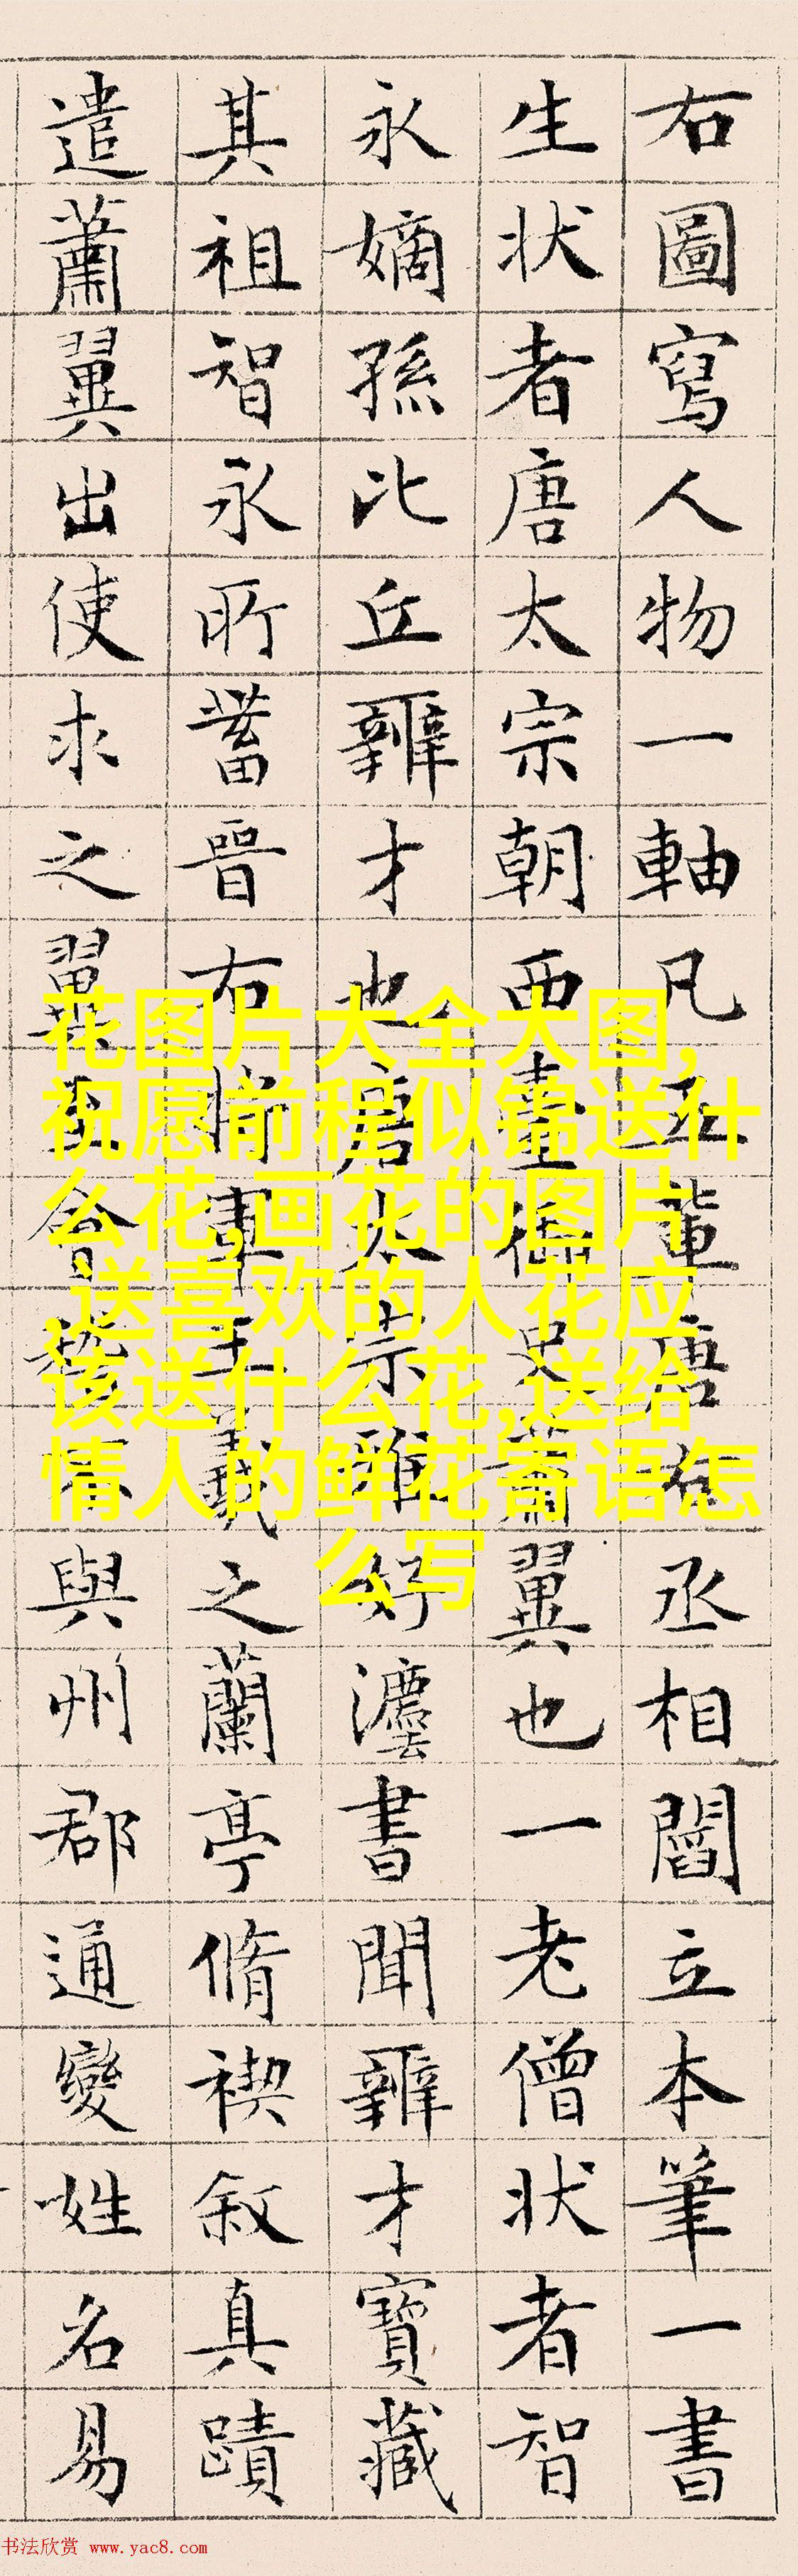 右圖寫人物一軸凡五輩唐右丞相閻立本筆一書
生状者唐太宗朝西臺御史蕭翼也一老僧状者智
永嫡孫比丘辯才也唐太宗雅好灋書聞辯才寶藏
其祖智永所蓄晉右将軍王羲之蘭亭脩禊叙真蹟
遣蕭翼出使求之翼至會稽不與州郡通變姓名易
花图片大全大图,
祝愿前程似锦送什
么花,画花的图片
,送喜欢的人花应
该送什么花,送给
情人的鲜花寄语怎
么写
书法欣赏 www.yac8.com